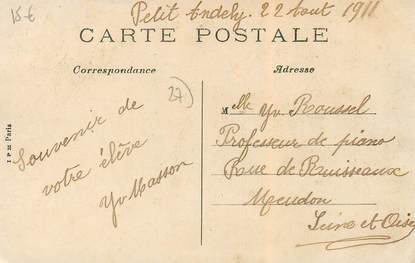 15€
Petit Andely 22 Aout 1911
CARTE POSTALE
Correspondance
Adresse
27
Souvenir de
votre élève
Yv Masson
Melle Yv. Roussel
Professeur de piano
Rue de Ruisseaux
Meudon
Seine et Oise
I P M Paris